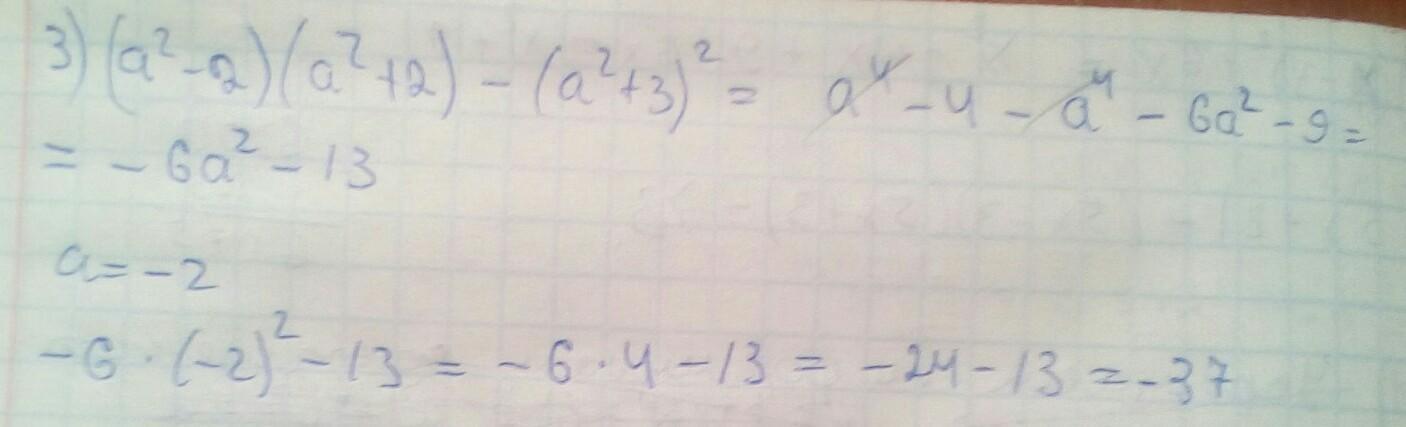 3) (a² - 2)(a² + 2) - (a² + 3)² = a⁴ - 4 - a⁴ - 6a² - 9 =
= - 6a² - 13
a = - 2
- 6 · (-2)² - 13 = - 6 · 4 - 13 = - 24 - 13 = - 37